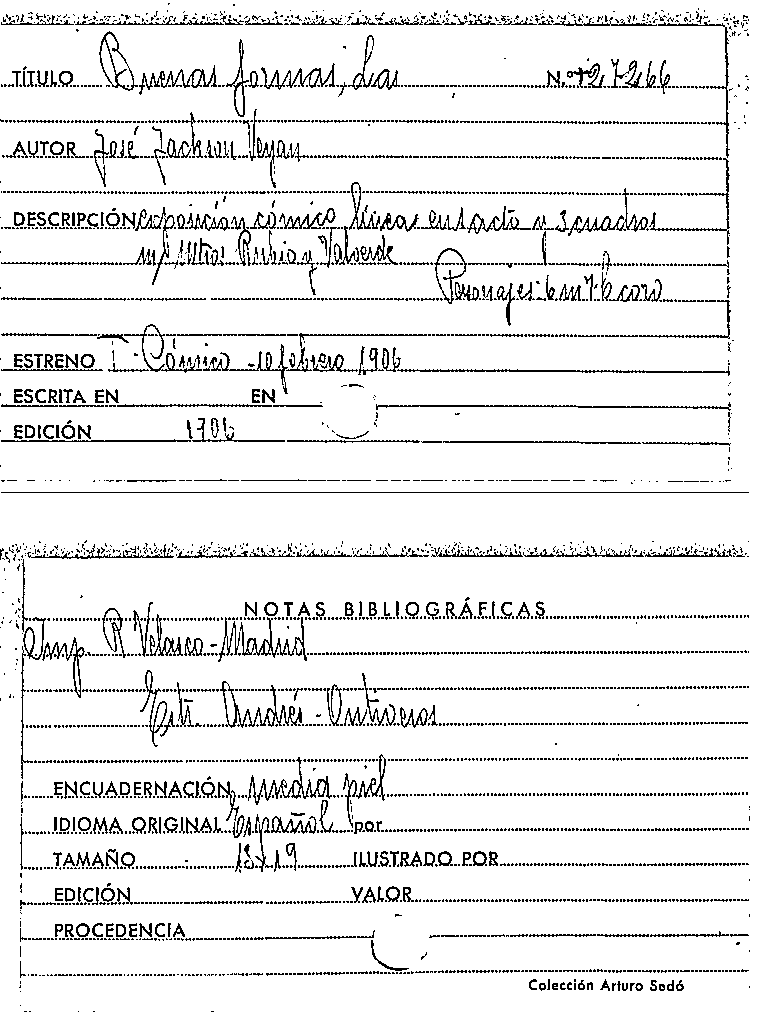 TÍTULO Buenas formas, Las N.º 27266
AUTOR José Jackson Veyan
DESCRIPCIÓN exposición cómico lírica en 1 acto y 3 cuadros
m/ Mtros Rubio y Valverde
Personajes: 6 m 7 h coro
ESTRENO T. Cómico - 10 febrero 1906
ESCRITA EN EN
EDICIÓN 1906
NOTAS BIBLIOGRÁFICAS
Imp. R Velasco - Madrid
Estr. Andrés - Ontiveros
ENCUADERNACIÓN media piel
IDIOMA ORIGINAL Español por
TAMAÑO 13x19 ILUSTRADO POR
EDICIÓN VALOR
PROCEDENCIA
Colección Arturo Sedó